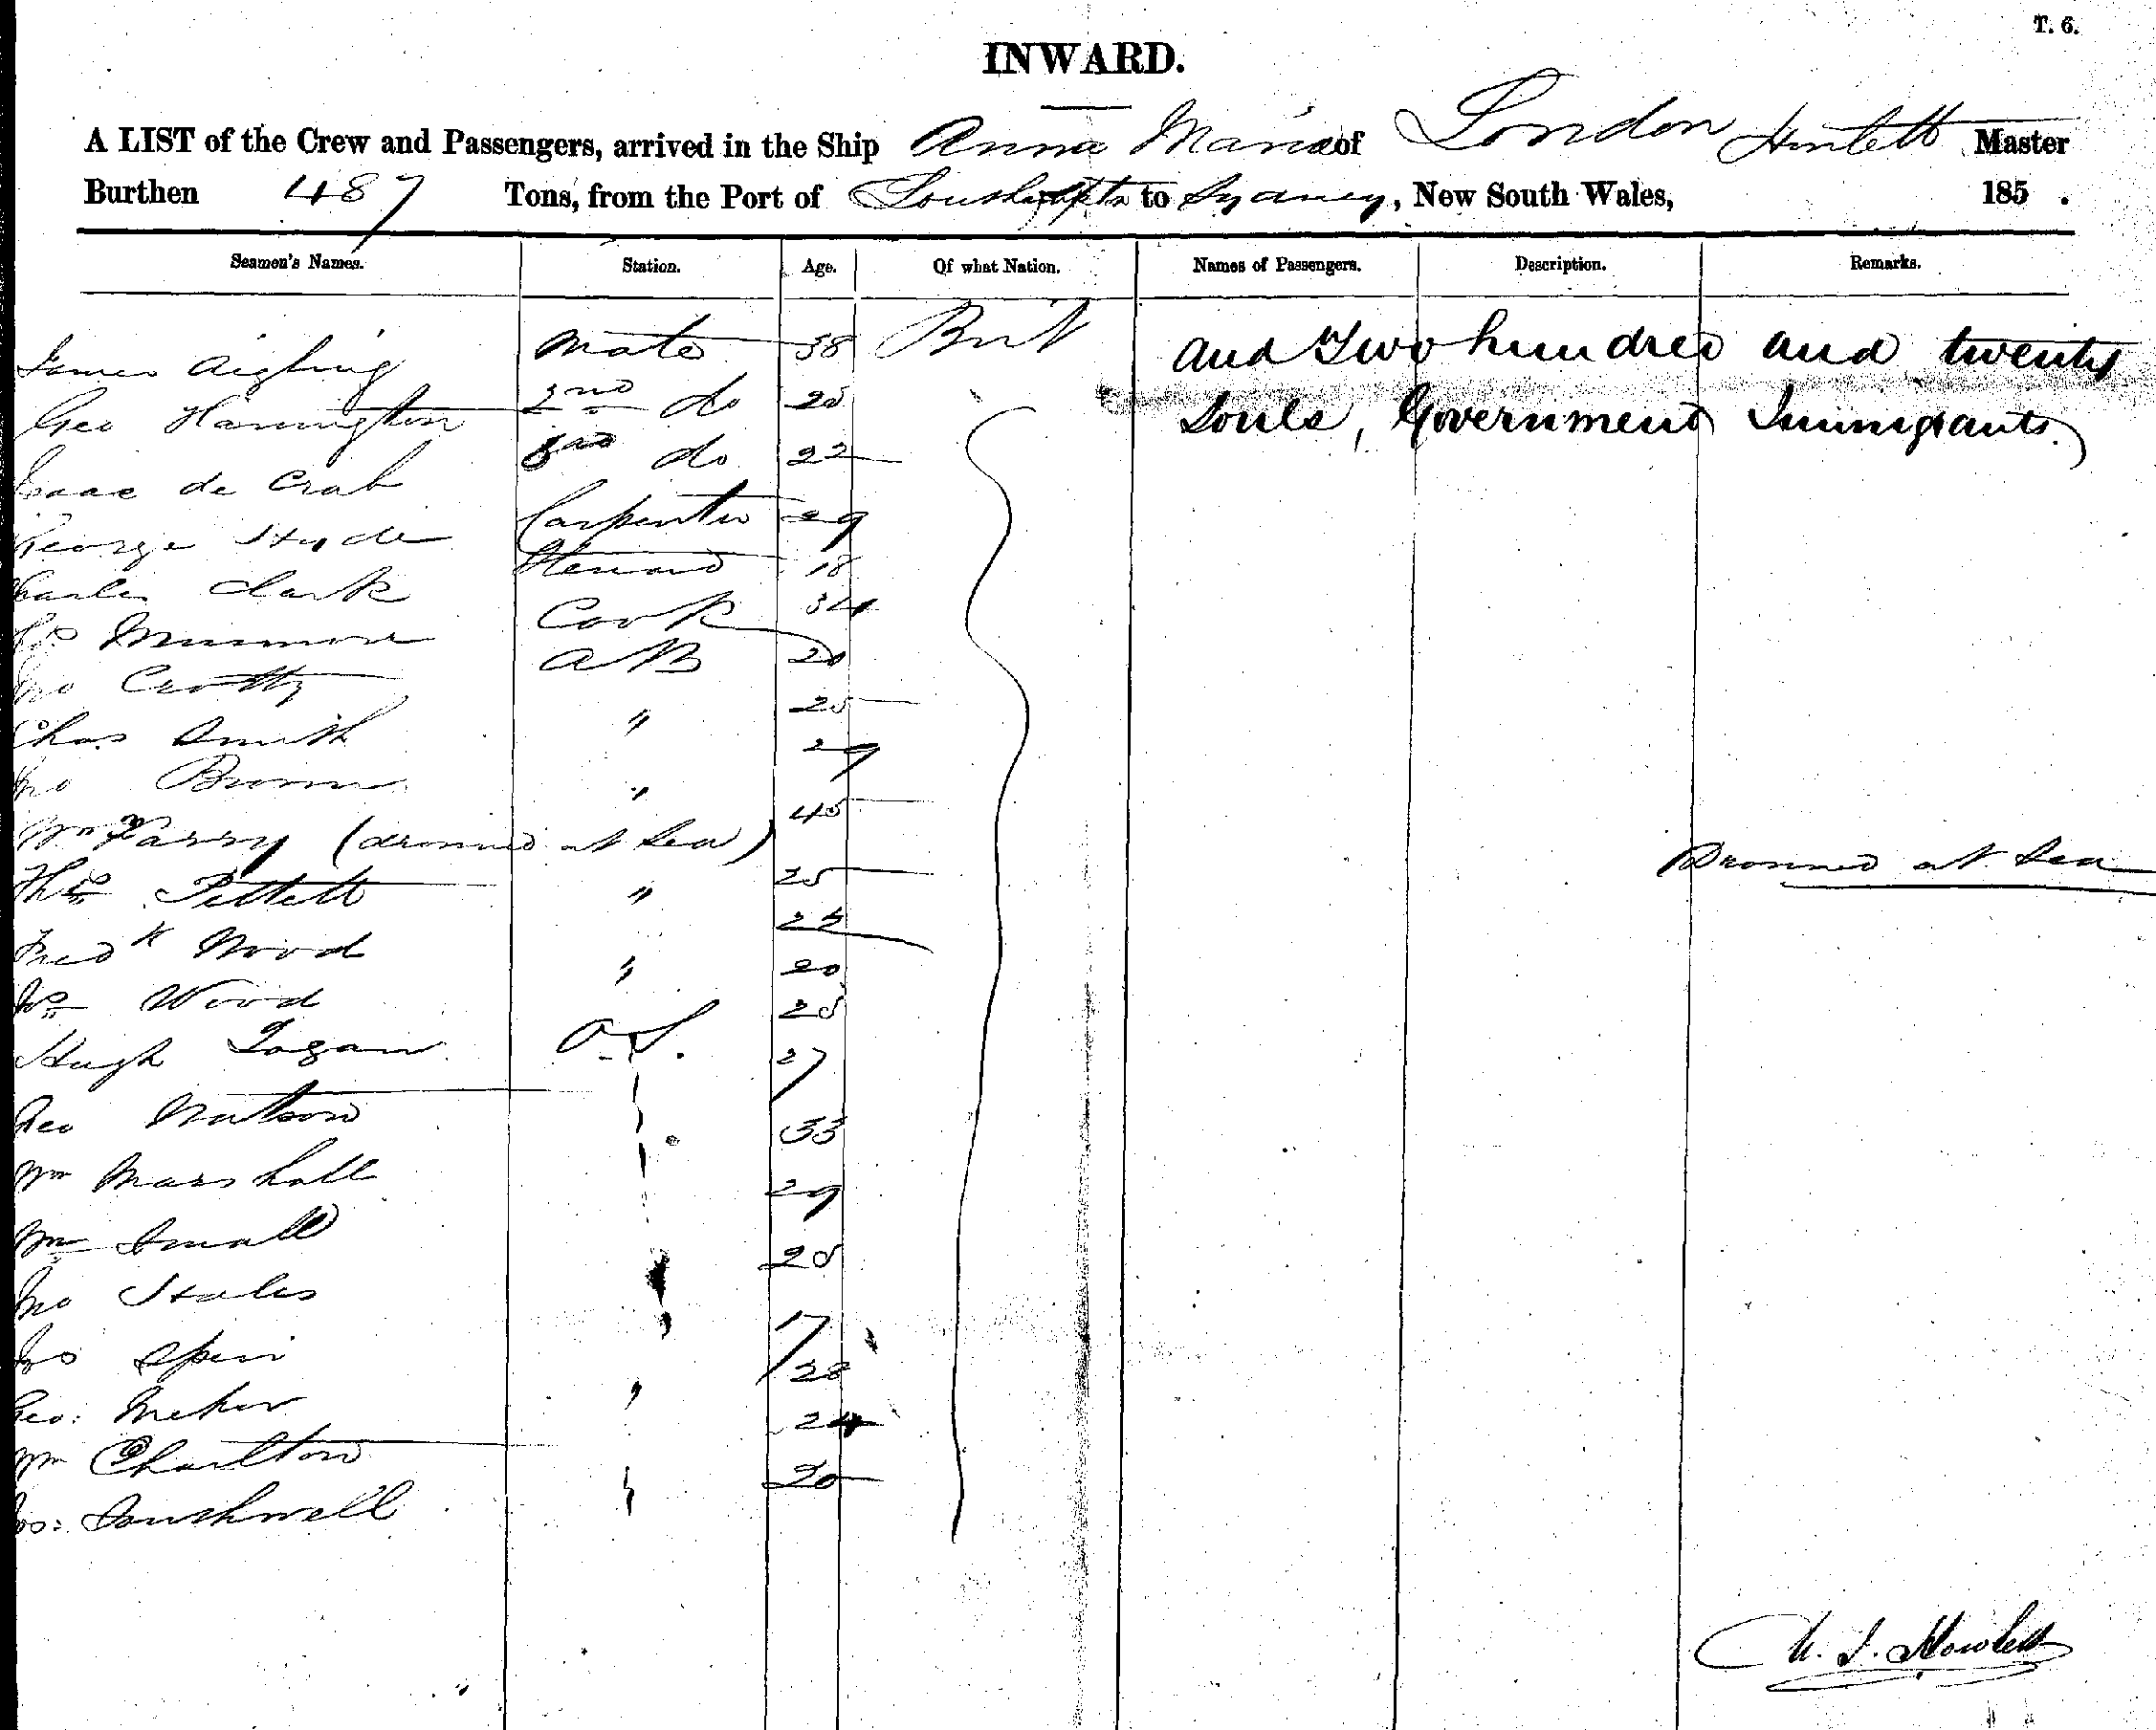 T. 6.
INWARD.
A LIST of the Crew and Passengers, arrived in the Ship Anna Maria of London Howlett Master
Burthen 487 Tons, from the Port of to Sydney, New South Wales, 185 .
Seamen's Names. Station. Age. Of what Nation. Names of Passengers. Description. Remarks.
James Mate 38 Brit and Two hundred and twenty
Geo Harrington 2nd do 25 Souls, Government Immigrants.
Isaac de Crab 3rd do 22
George Hyde Carpenter 29
Charles Clark Steward 18
Cook 34
Jno Crotty AB 20
Chas Smith " 25
Jno Brown " 29
Wm Parry (drowned at Sea) 45 Drowned at Sea
Thos Pettett " 25
Fredk Wood " 25
Wood 20
Hugh Logan O.S. 25
Geo Watson 27
Wm Marshall 33
Wm Small 29
Jno Hales 25
17
Geo: 28
Wm Charlton 24
Jos: Southwell 20
Howlett